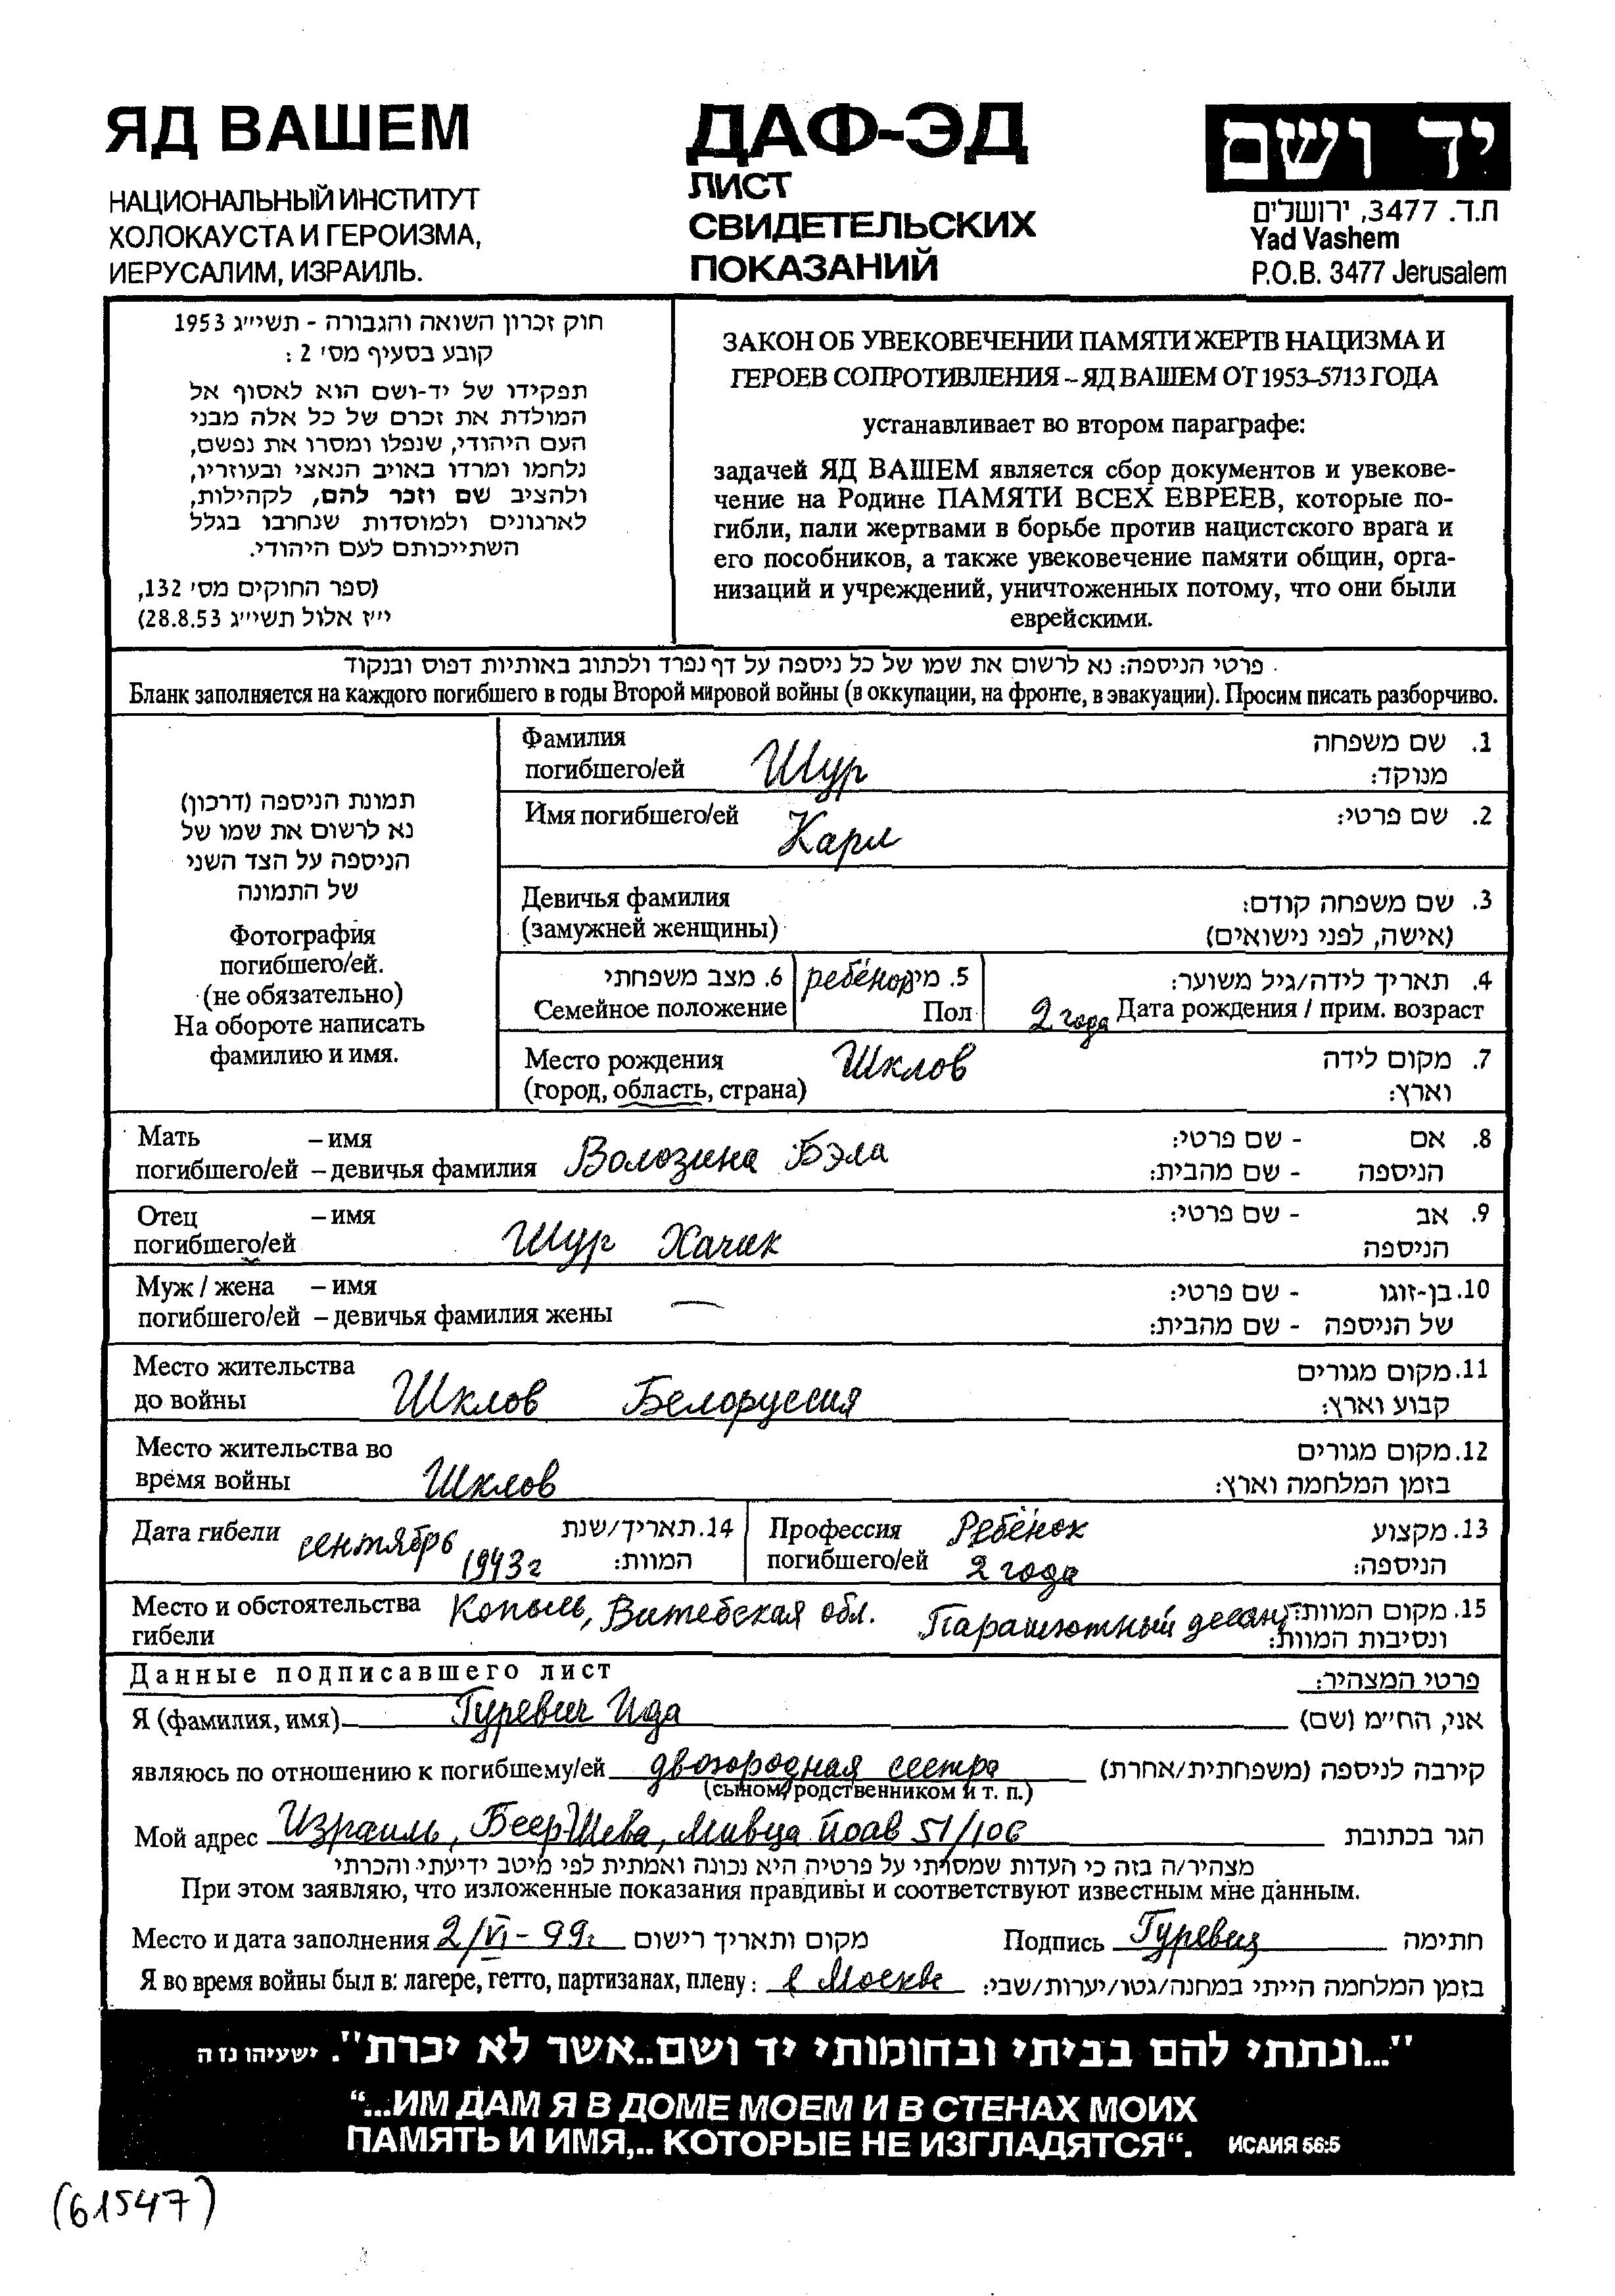 ЯД ВАШЕМ
НАЦИОНАЛЬНЫЙ ИНСТИТУТ
ХОЛОКАУСТА И ГЕРОИЗМА,
ИЕРУСАЛИМ, ИЗРАИЛЬ.
ДАФ-ЭД
ЛИСТ
СВИДЕТЕЛЬСКИХ
ПОКАЗАНИЙ
יד ושם
ת.ד. 3477, ירושלים
Yad Vashem
P.O.B. 3477 Jerusalem
חוק זכרון השואה והגבורה - תשי״ג 1953
קובע בסעיף מס׳ 2 :
תפקידו של יד-ושם הוא לאסוף אל
המולדת את זכרם של כל אלה מבני
העם היהודי, שנפלו ומסרו את נפשם,
נלחמו ומרדו באויב הנאצי ובעוזריו,
ולהציב שם וזכר להם, לקהילות,
לארגונים ולמוסדות שנחרבו בגלל
השתייכותם לעם היהודי.
(ספר החוקים מס׳ 132,
י״ז אלול תשי״ג 28.8.53)
ЗАКОН ОБ УВЕКОВЕЧЕНИИ ПАМЯТИ ЖЕРТВ НАЦИЗМА И
ГЕРОЕВ СОПРОТИВЛЕНИЯ – ЯД ВАШЕМ ОТ 1953–5713 ГОДА
устанавливает во втором параграфе:
задачей ЯД ВАШЕМ является сбор документов и увекове-
чение на Родине ПАМЯТИ ВСЕХ ЕВРЕЕВ, которые по-
гибли, пали жертвами в борьбе против нацистского врага и
его пособников, а также увековечение памяти общин, орга-
низаций и учреждений, уничтоженных потому, что они были
еврейскими.
פרטי הניספה: נא לרשום את שמו של כל ניספה על דף נפרד ולכתוב באותיות דפוס ובנקוד
Бланк заполняется на каждого погибшего в годы Второй мировой войны (в оккупации, на фронте, в эвакуации). Просим писать разборчиво.
תמונת הניספה (דרכון)
נא לרשום את שמו של
הניספה על הצד השני
של התמונה
Фотография
погибшего/ей.
(не обязательно)
На обороте написать
фамилию и имя.
Фамилия
погибшего/ей Шур
1. שם משפחה
מנוקד:
Имя погибшего/ей Карл
2. שם פרטי:
Девичья фамилия
(замужней женщины)
3. שם משפחה קודם:
(אישה, לפני נישואים)
6. מצב משפחתי
Семейное положение
5. מי ребёнок
Пол
4. תאריך לידה/גיל משוער:
2 года Дата рождения / прим. возраст
Место рождения Шклов
(город, область, страна)
7. מקום לידה
וארץ:
Мать – имя
погибшего/ей – девичья фамилия Волозина Бэла
8. אם - שם פרטי:
הניספה - שם מהבית:
Отец – имя
погибшего/ей Шур Хачик
9. אב - שם פרטי:
הניספה
Муж / жена – имя
погибшего/ей – девичья фамилия жены —
10. בן-זוגו - שם פרטי:
של הניספה - שם מהבית:
Место жительства
до войны Шклов Белоруссия
11. מקום מגורים
קבוע וארץ:
Место жительства во
время войны Шклов
12. מקום מגורים
בזמן המלחמה וארץ:
Дата гибели сентябрь
1943 г
14. תאריך/שנת
המוות:
Профессия Ребёнок
погибшего/ей 2 года
13. מקצוע
הניספה:
Место и обстоятельства Копыль, Витебская обл. Парашютный десант
гибели
15. מקום המוות
ונסיבות המוות:
Данные подписавшего лист
פרטי המצהיר:
Я (фамилия, имя) Гуревич Ида אני, הח״מ (שם)
являюсь по отношению к погибшему/ей двоюродная сестра קירבה לניספה (משפחתית/אחרת)
(сыном, родственником и т. п.)
Мой адрес Израиль, Беер-Шева, Мивца Йоав 51/106 הגר בכתובת
מצהיר/ה בזה כי העדות שמסרתי על פרטיה היא נכונה ואמתית לפי מיטב ידיעתי והכרתי
При этом заявляю, что изложенные показания правдивы и соответствуют известным мне данным.
Место и дата заполнения 2/VI - 99г. מקום ותאריך רישום Подпись Гуревич חתימה
Я во время войны был в: лагере, гетто, партизанах, плену: в Москве בזמן המלחמה הייתי במחנה/גטו/יערות/שבי:
"...ונתתי להם בביתי ובחומותי יד ושם..אשר לא יכרת". ישעיהו נז ה
“...ИМ ДАМ Я В ДОМЕ МОЕМ И В СТЕНАХ МОИХ
ПАМЯТЬ И ИМЯ,.. КОТОРЫЕ НЕ ИЗГЛАДЯТСЯ“. ИСАИЯ 56:5
(61547)